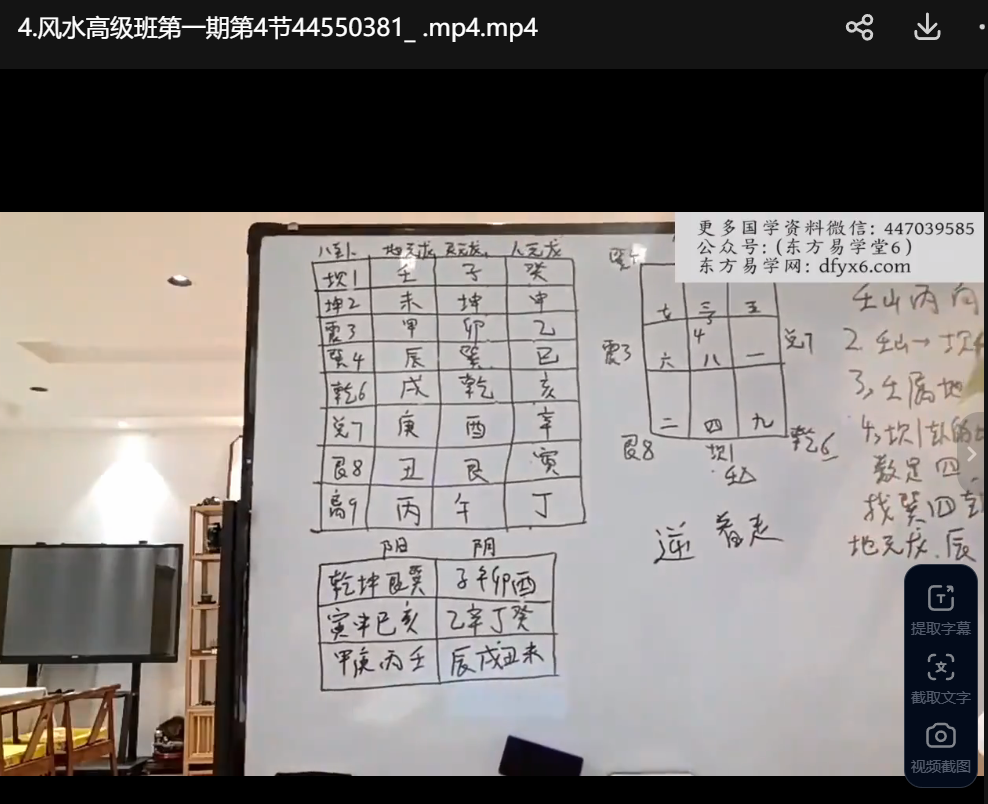 4.风水高级班第一期第4节44550381_ .mp4.mp4
更多国学资料微信: 447039585
公众号:(东方易学堂6)
东方易学网: dfyx6.com
八卦 地元龙 天元龙 人元龙
坎1 壬 子 癸
坤2 未 坤 申
震3 甲 卯 乙
巽4 辰 巽 巳
乾6 戌 乾 亥
兑7 庚 酉 辛
艮8 丑 艮 寅
离9 丙 午 丁
阳 阴
乾坤艮巽 子午卯酉
寅申巳亥 乙辛丁癸
甲庚丙壬 辰戌丑未
七 三 五
震3 六 4 八 一 兑7
二 四 九
艮8 坎1 乾6
逆着走
壬山丙向
2. 壬山→坎
3, 壬属地
4, 坎1卦的
数是四
找巽四
地元龙.辰
提取字幕
截取文字
视频截图